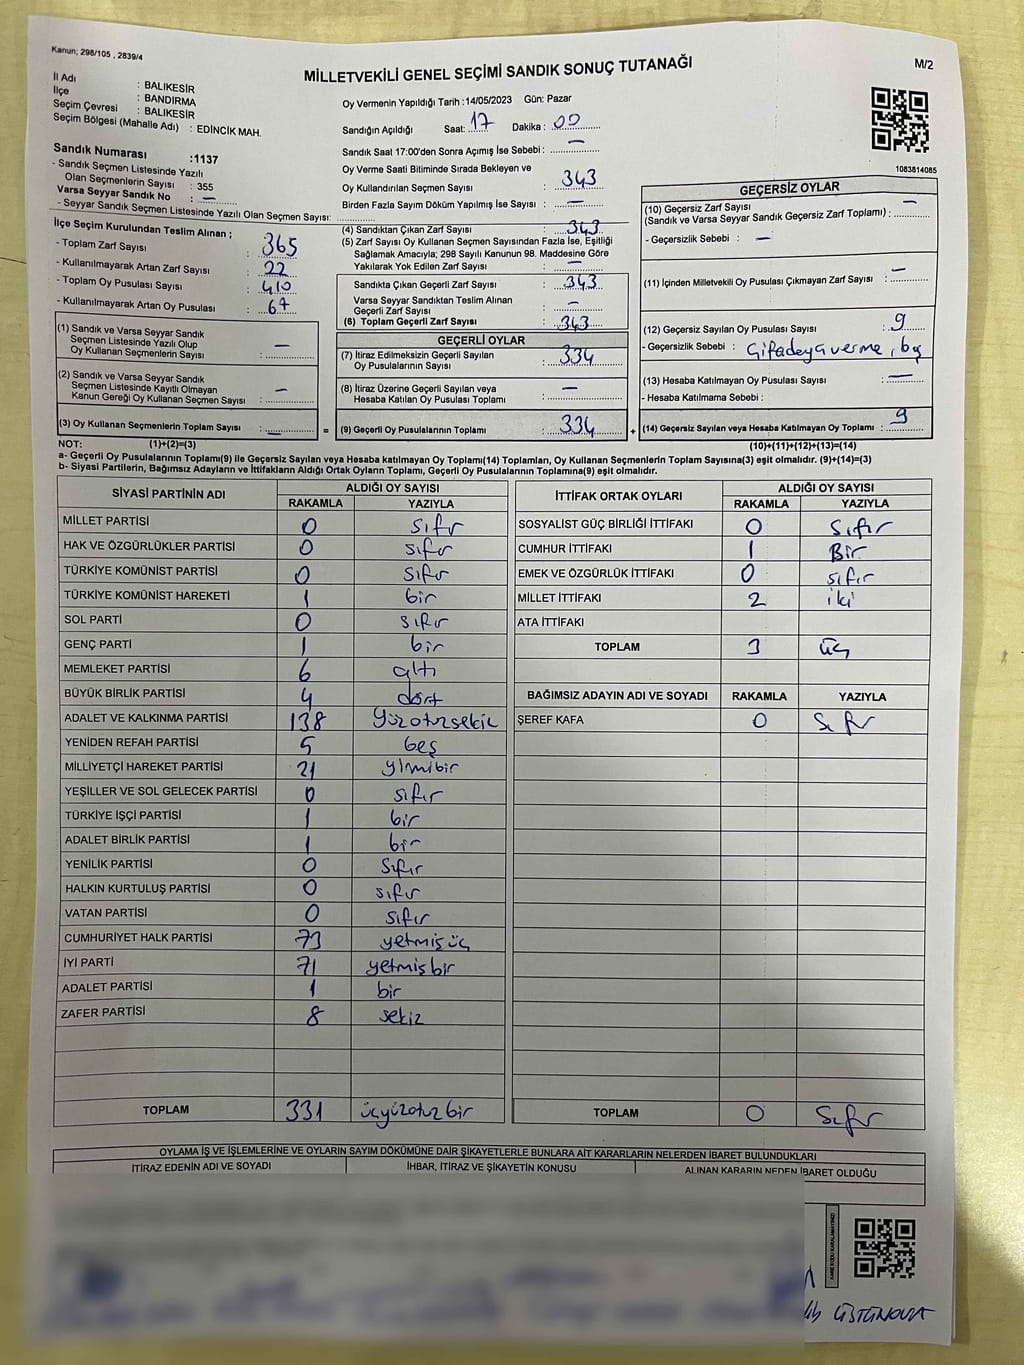 Kanun; 298/105 , 2839/4
MİLLETVEKİLİ GENEL SEÇİMİ SANDIK SONUÇ TUTANAĞI
M/2
İl Adı : BALIKESİR
İlçe : BANDIRMA
Seçim Çevresi : BALIKESİR
Seçim Bölgesi (Mahalle Adı) : EDİNCİK MAH.
Oy Vermenin Yapıldığı Tarih :14/05/2023 Gün: Pazar
Sandığın Açıldığı Saat: 17 Dakika : 00
Sandık Saat 17:00'den Sonra Açımış İse Sebebi : —
Oy Verme Saati Bitiminde Sırada Bekleyen ve
Oy Kullandırılan Seçmen Sayısı : 343
Birden Fazla Sayım Döküm Yapılmış İse Sayısı : —
1083814085
Sandık Numarası :1137
- Sandık Seçmen Listesinde Yazılı
Olan Seçmenlerin Sayısı : 355
Varsa Seyyar Sandık No : —
- Seyyar Sandık Seçmen Listesinde Yazılı Olan Seçmen Sayısı:
İlçe Seçim Kurulundan Teslim Alınan ;
- Toplam Zarf Sayısı : 365
- Kullanılmayarak Artan Zarf Sayısı : 22
- Toplam Oy Pusulası Sayısı : 410
- Kullanılmayarak Artan Oy Pusulası : 67
(1) Sandık ve Varsa Seyyar Sandık
Seçmen Listesinde Yazılı Olup
Oy Kullanan Seçmenlerin Sayısı : —
(2) Sandık ve Varsa Seyyar Sandık
Seçmen Listesinde Kayıtlı Olmayan
Kanun Gereği Oy Kullanan Seçmen Sayısı : —
(3) Oy Kullanan Seçmenlerin Toplam Sayısı : —
(4) Sandıktan Çıkan Zarf Sayısı : 343
(5) Zarf Sayısı Oy Kullanan Seçmen Sayısından Fazla İse, Eşitliği
Sağlamak Amacıyla; 298 Sayılı Kanunun 98. Maddesine Göre
Yakılarak Yok Edilen Zarf Sayısı : —
Sandıkta Çıkan Geçerli Zarf Sayısı : 343
Varsa Seyyar Sandıktan Teslim Alınan
Geçerli Zarf Sayısı : —
(6) Toplam Geçerli Zarf Sayısı : 343
GEÇERLİ OYLAR
(7) İtiraz Edilmeksizin Geçerli Sayılan
Oy Pusulalarının Sayısı : 334
(8) İtiraz Üzerine Geçerli Sayılan veya
Hesaba Katılan Oy Pusulası Toplamı : —
= (9) Geçerli Oy Pusulalarının Toplamı : 334
GEÇERSİZ OYLAR
(10) Geçersiz Zarf Sayısı
(Sandık ve Varsa Seyyar Sandık Geçersiz Zarf Toplamı) : —
- Geçersizlik Sebebi : —
(11) İçinden Milletvekili Oy Pusulası Çıkmayan Zarf Sayısı : —
(12) Geçersiz Sayılan Oy Pusulası Sayısı : 9
- Geçersizlik Sebebi :
(13) Hesaba Katılmayan Oy Pusulası Sayısı : —
- Hesaba Katılmama Sebebi :
+ (14) Geçersiz Sayılan veya Hesaba Katılmayan Oy Toplamı : 9
NOT: (1)+(2)=(3) (10)+(11)+(12)+(13)=(14)
a- Geçerli Oy Pusulalarının Toplamı(9) ile Geçersiz Sayılan veya Hesaba katılmayan Oy Toplamı(14) Toplamları, Oy Kullanan Seçmenlerin Toplam Sayısına(3) eşit olmalıdır. (9)+(14)=(3)
b- Siyasi Partilerin, Bağımsız Adayların ve İttifakların Aldığı Ortak Oyların Toplamı, Geçerli Oy Pusulalarının Toplamına(9) eşit olmalıdır.
SİYASİ PARTİNİN ADI ALDIĞI OY SAYISI
RAKAMLA YAZIYLA
MİLLET PARTİSİ 0 sıfır
HAK VE ÖZGÜRLÜKLER PARTİSİ 0 sıfır
TÜRKİYE KOMÜNİST PARTİSİ 0 sıfır
TÜRKİYE KOMÜNİST HAREKETİ 1 bir
SOL PARTİ 0 sıfır
GENÇ PARTİ 1 bir
MEMLEKET PARTİSİ 6 altı
BÜYÜK BİRLİK PARTİSİ 4 dört
ADALET VE KALKINMA PARTİSİ 138 yüzotuzsekiz
YENİDEN REFAH PARTİSİ 5 beş
MİLLİYETÇİ HAREKET PARTİSİ 21 yirmibir
YEŞİLLER VE SOL GELECEK PARTİSİ 0 sıfır
TÜRKİYE İŞÇİ PARTİSİ 1 bir
ADALET BİRLİK PARTİSİ 1 bir
YENİLİK PARTİSİ 0 sıfır
HALKIN KURTULUŞ PARTİSİ 0 sıfır
VATAN PARTİSİ 0 sıfır
CUMHURİYET HALK PARTİSİ 73 yetmişüç
İYİ PARTİ 71 yetmişbir
ADALET PARTİSİ 1 bir
ZAFER PARTİSİ 8 sekiz
TOPLAM 331 üçyüzotuzbir
İTTİFAK ORTAK OYLARI ALDIĞI OY SAYISI
RAKAMLA YAZIYLA
SOSYALİST GÜÇ BİRLİĞİ İTTİFAKI 0 sıfır
CUMHUR İTTİFAKI 1 Bir
EMEK VE ÖZGÜRLÜK İTTİFAKI 0 sıfır
MİLLET İTTİFAKI 2 iki
ATA İTTİFAKI
TOPLAM 3 üç
BAĞIMSIZ ADAYIN ADI VE SOYADI RAKAMLA YAZIYLA
ŞEREF KAFA 0 sıfır
TOPLAM 0 Sıfır
OYLAMA İŞ VE İŞLEMLERİNE VE OYLARIN SAYIM DÖKÜMÜNE DAİR ŞİKAYETLERLE BUNLARA AİT KARARLARIN NELERDEN İBARET BULUNDUKLARI
İTİRAZ EDENİN ADI VE SOYADI İHBAR, İTİRAZ VE ŞİKAYETİN KONUSU ALINAN KARARIN NEDEN İBARET OLDUĞU
KARE KODU KARALAMAYINIZ!
ÜSTÜNOVA